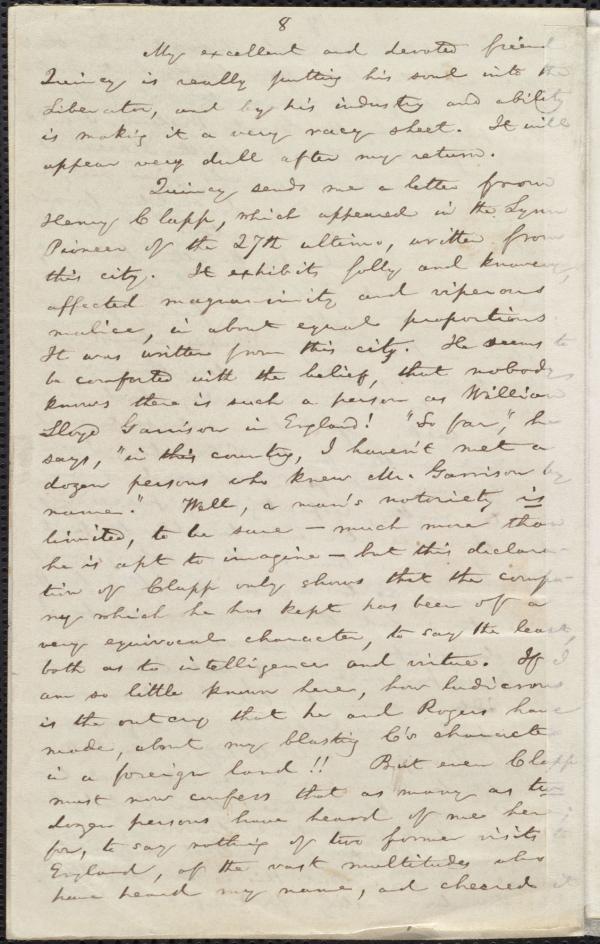 8
My excellent and devoted friend
Quincy is really putting his soul into the
Liberator, and by his industry and ability
is making it a very racy sheet. It will
appear very dull after my return.
Quincy sends me a letter from
Henry Clapp, which appeared in the Lynn
Pioneer of the 27th ultimo, written from
this city. It exhibits folly and knavery,
affected magnanimity and viperous
malice, in about equal proportions.
It was written from this city. He seems to
be comforted with the belief, that nobody
knows there is such a person as William
Lloyd Garrison in England! "So far," he
says, "in this country, I haven't met a
dozen persons who knew Mr. Garrison by
name." Well, a man's notoriety is
limited, to be sure — much more than
he is apt to imagine — but this declara-
tion of Clapp only shows that the compa-
ny which he has kept has been of a
very equivocal character, to say the least,
both as to intelligence and virtue. If I
am so little known here, how ludicrous
is the outcry that he and Rogers have
made, about my blasting C's character
in a foreign land!! But even Clapp
must now confess that as many as two
dozen persons have heard of me here
for, to say nothing of two former visits to
England, of the vast multitudes who
have heard my name, and cheered it